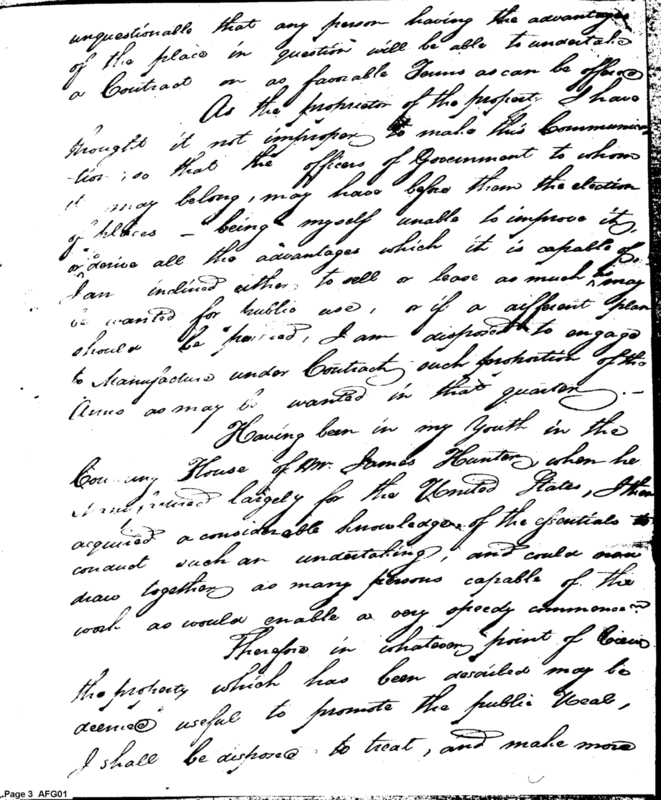 unquestionable that any person having the advantages
of the place in question will be able to undertake
a Contract on as favorable Terms as can be offered
As the proprietor of the property I have
thought it not improper to make this Communica
tion, so that the officers of Government to whom
it may belong, may have before them the election
of places – being myself unable to improve it,
or derive all the advantages which it is capable of,
I am inclined either to sell or lease as much as may
be wanted for public use, or if a different plan
should be pursued, I am disposed to engage
to Manufacture under Contract such proportion of the
Arms as may be wanted in that quarter. –
Having been in my Youth in the
House of Mr. James Hunter, when he
Manufactured largely for the United States, I then
acquired a considerable knowledge of the essentials to
conduct such an undertaking, and could now
draw together as many persons capable of the
work as would enable a very speedy commencemt
Therefore in whatever point of View
the property which has been described may be
deemed useful to promote the public Weal,
I shall be disposed to treat, and make more
Page 3 AFG01